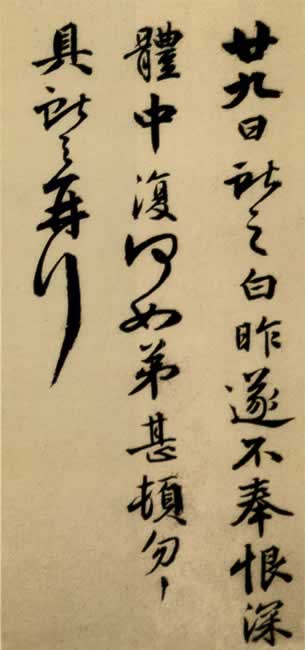 廿九日獻之白昨遂不奉恨深
體中復何如弟甚頓勿〻
具獻之再拜